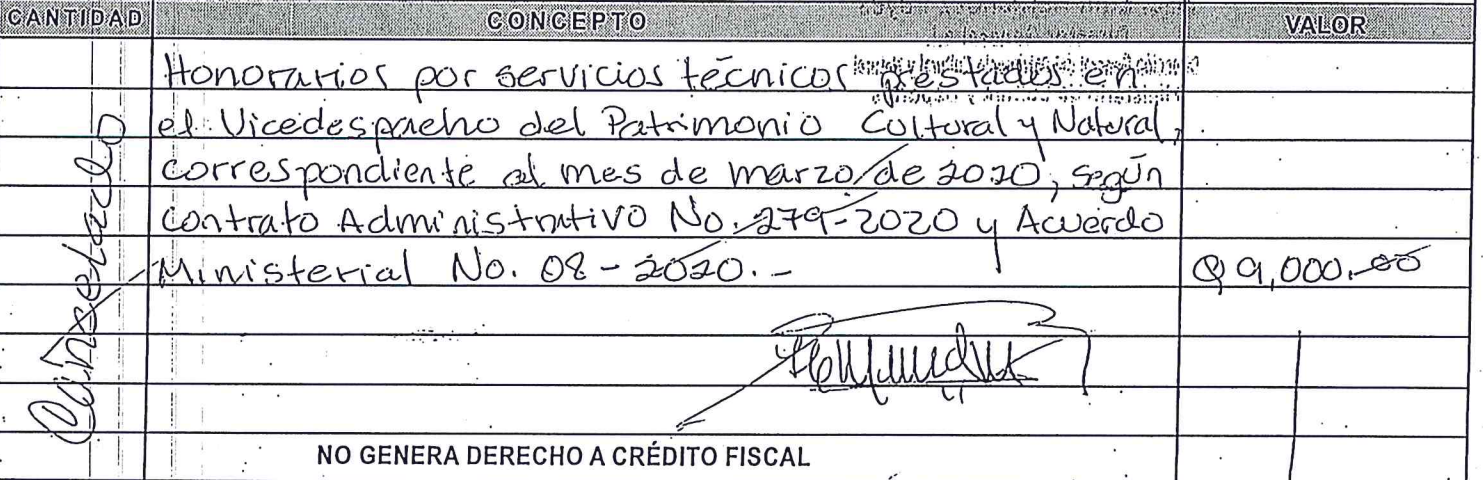 CANTIDAD CONCEPTO VALOR
Honorarios por servicios técnicos prestados en
el Vicedespacho del Patrimonio Cultural y Natural,
correspondiente al mes de marzo de 2020, según
Contrato Administrativo No. 279-2020 y Acuerdo
Ministerial No. 08-2020.- Q 9,000.00
Cancelado
NO GENERA DERECHO A CRÉDITO FISCAL